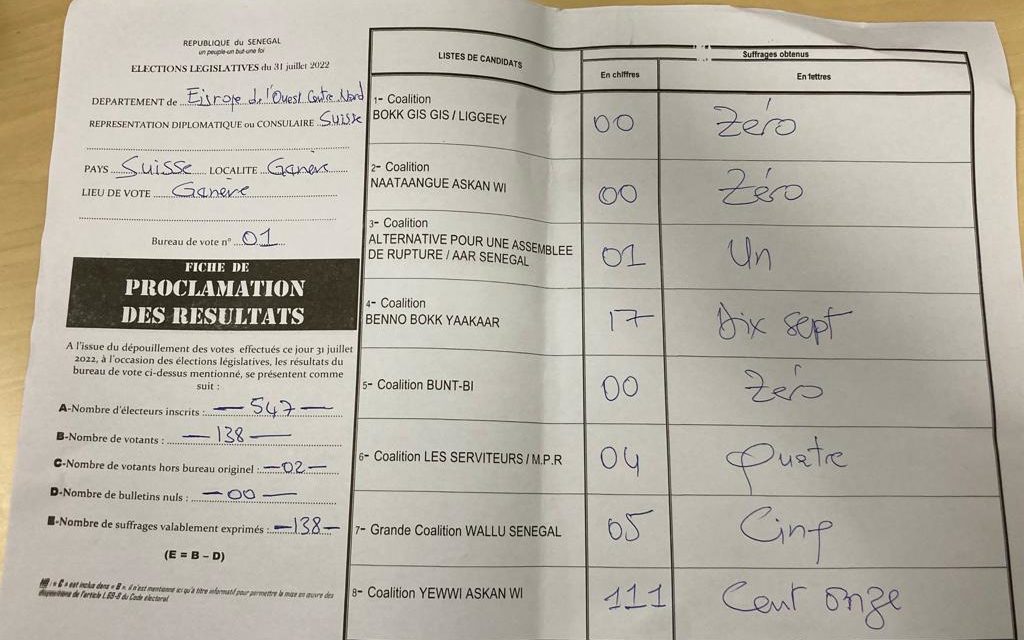 REPUBLIQUE du SENEGAL
un peuple-un but-une foi
ELECTIONS LEGISLATIVES du 31 juillet 2022
DEPARTEMENT de Europe de l'Ouest Centre Nord
REPRESENTATION DIPLOMATIQUE ou CONSULAIRE Suisse
PAYS Suisse LOCALITE Genève
LIEU DE VOTE Genève
Bureau de vote n° 01
FICHE DE
PROCLAMATION
DES RESULTATS
A l'issue du dépouillement des votes effectués ce jour 31 juillet
2022, à l'occasion des élections législatives, les résultats du
bureau de vote ci-dessus mentionné, se présentent comme
suit :
A-Nombre d'électeurs inscrits : — 547 —
B-Nombre de votants : — 138 —
C-Nombre de votants hors bureau originel : — 02 —
D-Nombre de bulletins nuls : — 00 —
E-Nombre de suffrages valablement exprimés : — 138 —
(E = B – D)
NB : « C » est inclus dans « B », il n'est mentionné ici qu'à titre informatif pour permettre la mise en œuvre des
dispositions de l'article L.69-8 du Code électoral
LISTES DE CANDIDATS
Suffrages obtenus
En chiffres
En lettres
1- Coalition
BOKK GIS GIS / LIGGEEY
00 Zéro
2- Coalition
NAATAANGUE ASKAN WI
00 Zéro
3- Coalition
ALTERNATIVE POUR UNE ASSEMBLEE
DE RUPTURE / AAR SENEGAL
01 Un
4- Coalition
BENNO BOKK YAAKAAR
17 dix sept
5- Coalition BUNT-BI
00 Zéro
6- Coalition LES SERVITEURS / M.P.R
04 quatre
7- Grande Coalition WALLU SENEGAL
05 Cinq
8- Coalition YEWWI ASKAN WI
111 Cent onze